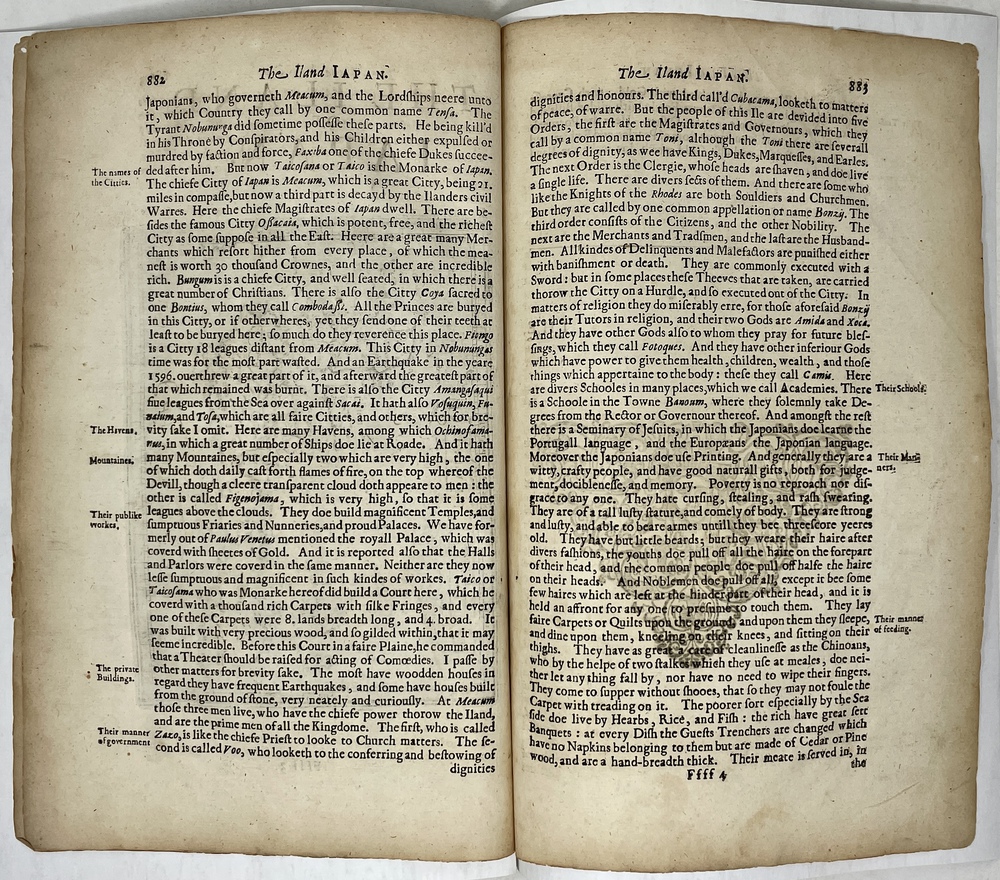 882
The Iland IAPAN.
Japonians, who governeth Meacum, and the Lordships neere unto
it, which Country they call by one common name Tensa. The
Tyrant Nobununga did sometime possesse these parts. He being kill'd
in his Throne by Conspirators, and his Children either expulsed or
murdred by faction and force, Faxiba one of the chiefe Dukes succee-
ded after him. But now Taicosana or Taico is the Monarke of Iapan.
The names of
the Citties.
The chiefe City of Iapan is Meacum, which is a great Citty, being 21.
miles in compasse, but now a third part is decayd by the Ilanders civill
Warres. Here the chiefe Magistrates of Iapan dwell. There are be-
sides the famous Citty Ossacaia, which is potent, free, and the richest
Citty as some suppose in all the East. Heere are a great many Mer-
chants which resort hither from every place, of which the mea-
nest is worth 30 thousand Crownes, and the other are incredible
rich. Bungum is is a chiefe Citty, and well seated, in which there is a
great number of Christians. There is also the City Coya sacred to
one Bontius, whom they call Combodassi. All the Princes are buryed
in this Citty, or if otherwheres, yet they send one of their teeth at
least to be buryed here; so much do they reverence this place. Fiongo
is a City 18 leagues distant from Meacum. This Citty in Nobunungas
time was for the most part wasted. And an Earthquake in the yeare
1596. overthrew a great part of it, and afterward the greatest part of
that which remained was burnt. There is also the Citty Amangasaqui
five leagues from the Sea over against Sacai. It hath also Vosuquin, Fu-
naium, and Tosa, which are all faire Citties, and others, which for bre-
The Havens.
vity sake I omit. Here are many Havens, among which Ochinofama-
rus, in which a great number of Ships doe lie at Roade. And it hath
Mountaines.
many Mountaines, but especially two which are very high, the one
of which doth daily cast forth flames of fire, on the top whereof the
Devill, though a cleere transparent cloud doth appeare to men: the
other is called Figenojama, which is very high, so that it is some
leagues above the clouds. They doe build magnificent Temples, and
Their publike
workes.
sumptuous Friaries and Nunneries, and proud Palaces. We have for-
merly out of Paulus Venetus mentioned the royall Palace, which was
coverd with sheetes of Gold. And it is reported also that the Halls
and Parlors were coverd in the same manner. Neither are they now
lesse sumptuous and magnificent in such kindes of workes. Taico or
Taicosama who was Monarke hereof did build a Court here, which he
coverd with a thousand rich Carpets with silke Fringes, and every
one of these Carpets were 8. lands breadth long, and 4. broad. It
was built with very precious wood, and so gilded within, that it may
seeme incredible. Before this Court in a faire Plaine, he commanded
that a Theater should be raised for acting of Comœdies. I passe by
The private
Buildings.
other matters for brevity sake. The most have woodden houses in
regard they have frequent Earthquakes, and some have houses built
from the ground of stone, very neately and curiously. At Meacum
those three men live, who have the chiefe power thorow the Iland,
and are the prime men of all the Kingdome. The first, who is called
Their manner
of government
Zazo, is like the chiefe Priest to looke to Church matters. The se-
cond is called Voo, who looketh to the conferring and bestowing of
dignities
The Iland IAPAN.
883
dignities and honours. The third call'd Cubacama, looketh to matters
of peace, of warre. But the people of this Ile are devided into five
Orders, the first are the Magistrates and Governours, which they
call by a common name Toni, although the Toni there are severall
degrees of dignity, as wee have Kings, Dukes, Marquesses, and Earles.
The next Order is the Clergie, whose heads are shaven, and doe live
a single life. There are divers sects of them. And there are some who
like the Knights of the Rhodes are both Souldiers and Churchmen.
But they are called by one common appellation or name Bonzij. The
third order consists of the Citizens, and the other Nobility. The
next are the Merchants and Tradsmen, and the last are the Husband-
men. All kindes of Delinquents and Malefactors are punished either
with banishment or death. They are commonly executed with a
Sword: but in some places these Theeves that are taken, are carried
thorow the Citty on a Hurdle, and so executed out of the Citty. In
matters of religion they do miserably erre, for those aforesaid Bonzij
are their Tutors in religion, and their two Gods are Amida and Xoca.
And they have other Gods also to whom they pray for future bles-
sings, which they call Fotoques. And they have other inferiour Gods
which have power to give them health, children, wealth, and those
things which appertaine to the body: these they call Camis. Here
are divers Schooles in many places, which we call Academies. There
Their Schools.
is a Schoole in the Towne Banoum, where they solemnly take De-
grees from the Rector or Governour thereof. And amongst the rest
there is a Seminary of Jesuits, in which the Japonians doe learne the
Portugall language, and the Europæans the Japonian language.
Moreover the Japonians doe use Printing. And generally they are a
Their Man-
ners.
witty, crafty people, and have good naturall gifts, both for judge-
ment, dociblenesse, and memory. Poverty is no reproach nor dis-
grace to any one. They hate cursing, stealing, and rash swearing.
They are of a tall lusty stature, and comely of body. They are strong
and lusty, and able to beare armes untill they bee threescore yeeres
old. They have but little beards; but they weare their haire after
divers fashions, the youths doe pull off all the haire on the forepart
of their head, and the common people doe pull off halfe the haire
on their heads. And Noblemen doe pull off all, except it bee some
few haires which are left at the hinder part of their head, and it is
held an affront for any one to presume to touch them. They lay
faire Carpets or Quilts upon the ground, and upon them they sleepe,
Their manner
of feeding.
and dine upon them, kneeling on their knees, and sitting on their
thighs. They have as great a care of cleanlinesse as the Chinoans,
who by the helpe of two stalkes which they use at meales, doe nei-
ther let any thing fall by, nor have no need to wipe their fingers.
They come to supper without shooes, that so they may not foule the
Carpet with treading on it. The poorer sort especially by the Sea
side doe live by Hearbs, Rice, and Fish: the rich have great sett
Banquets: at every Dish the Guests Trenchers are changed which
have no Napkins belonging to them but are made of Cedar or Pine
wood, and are a hand-breadth thick. Their meate is served in, in
Ffff 4
the